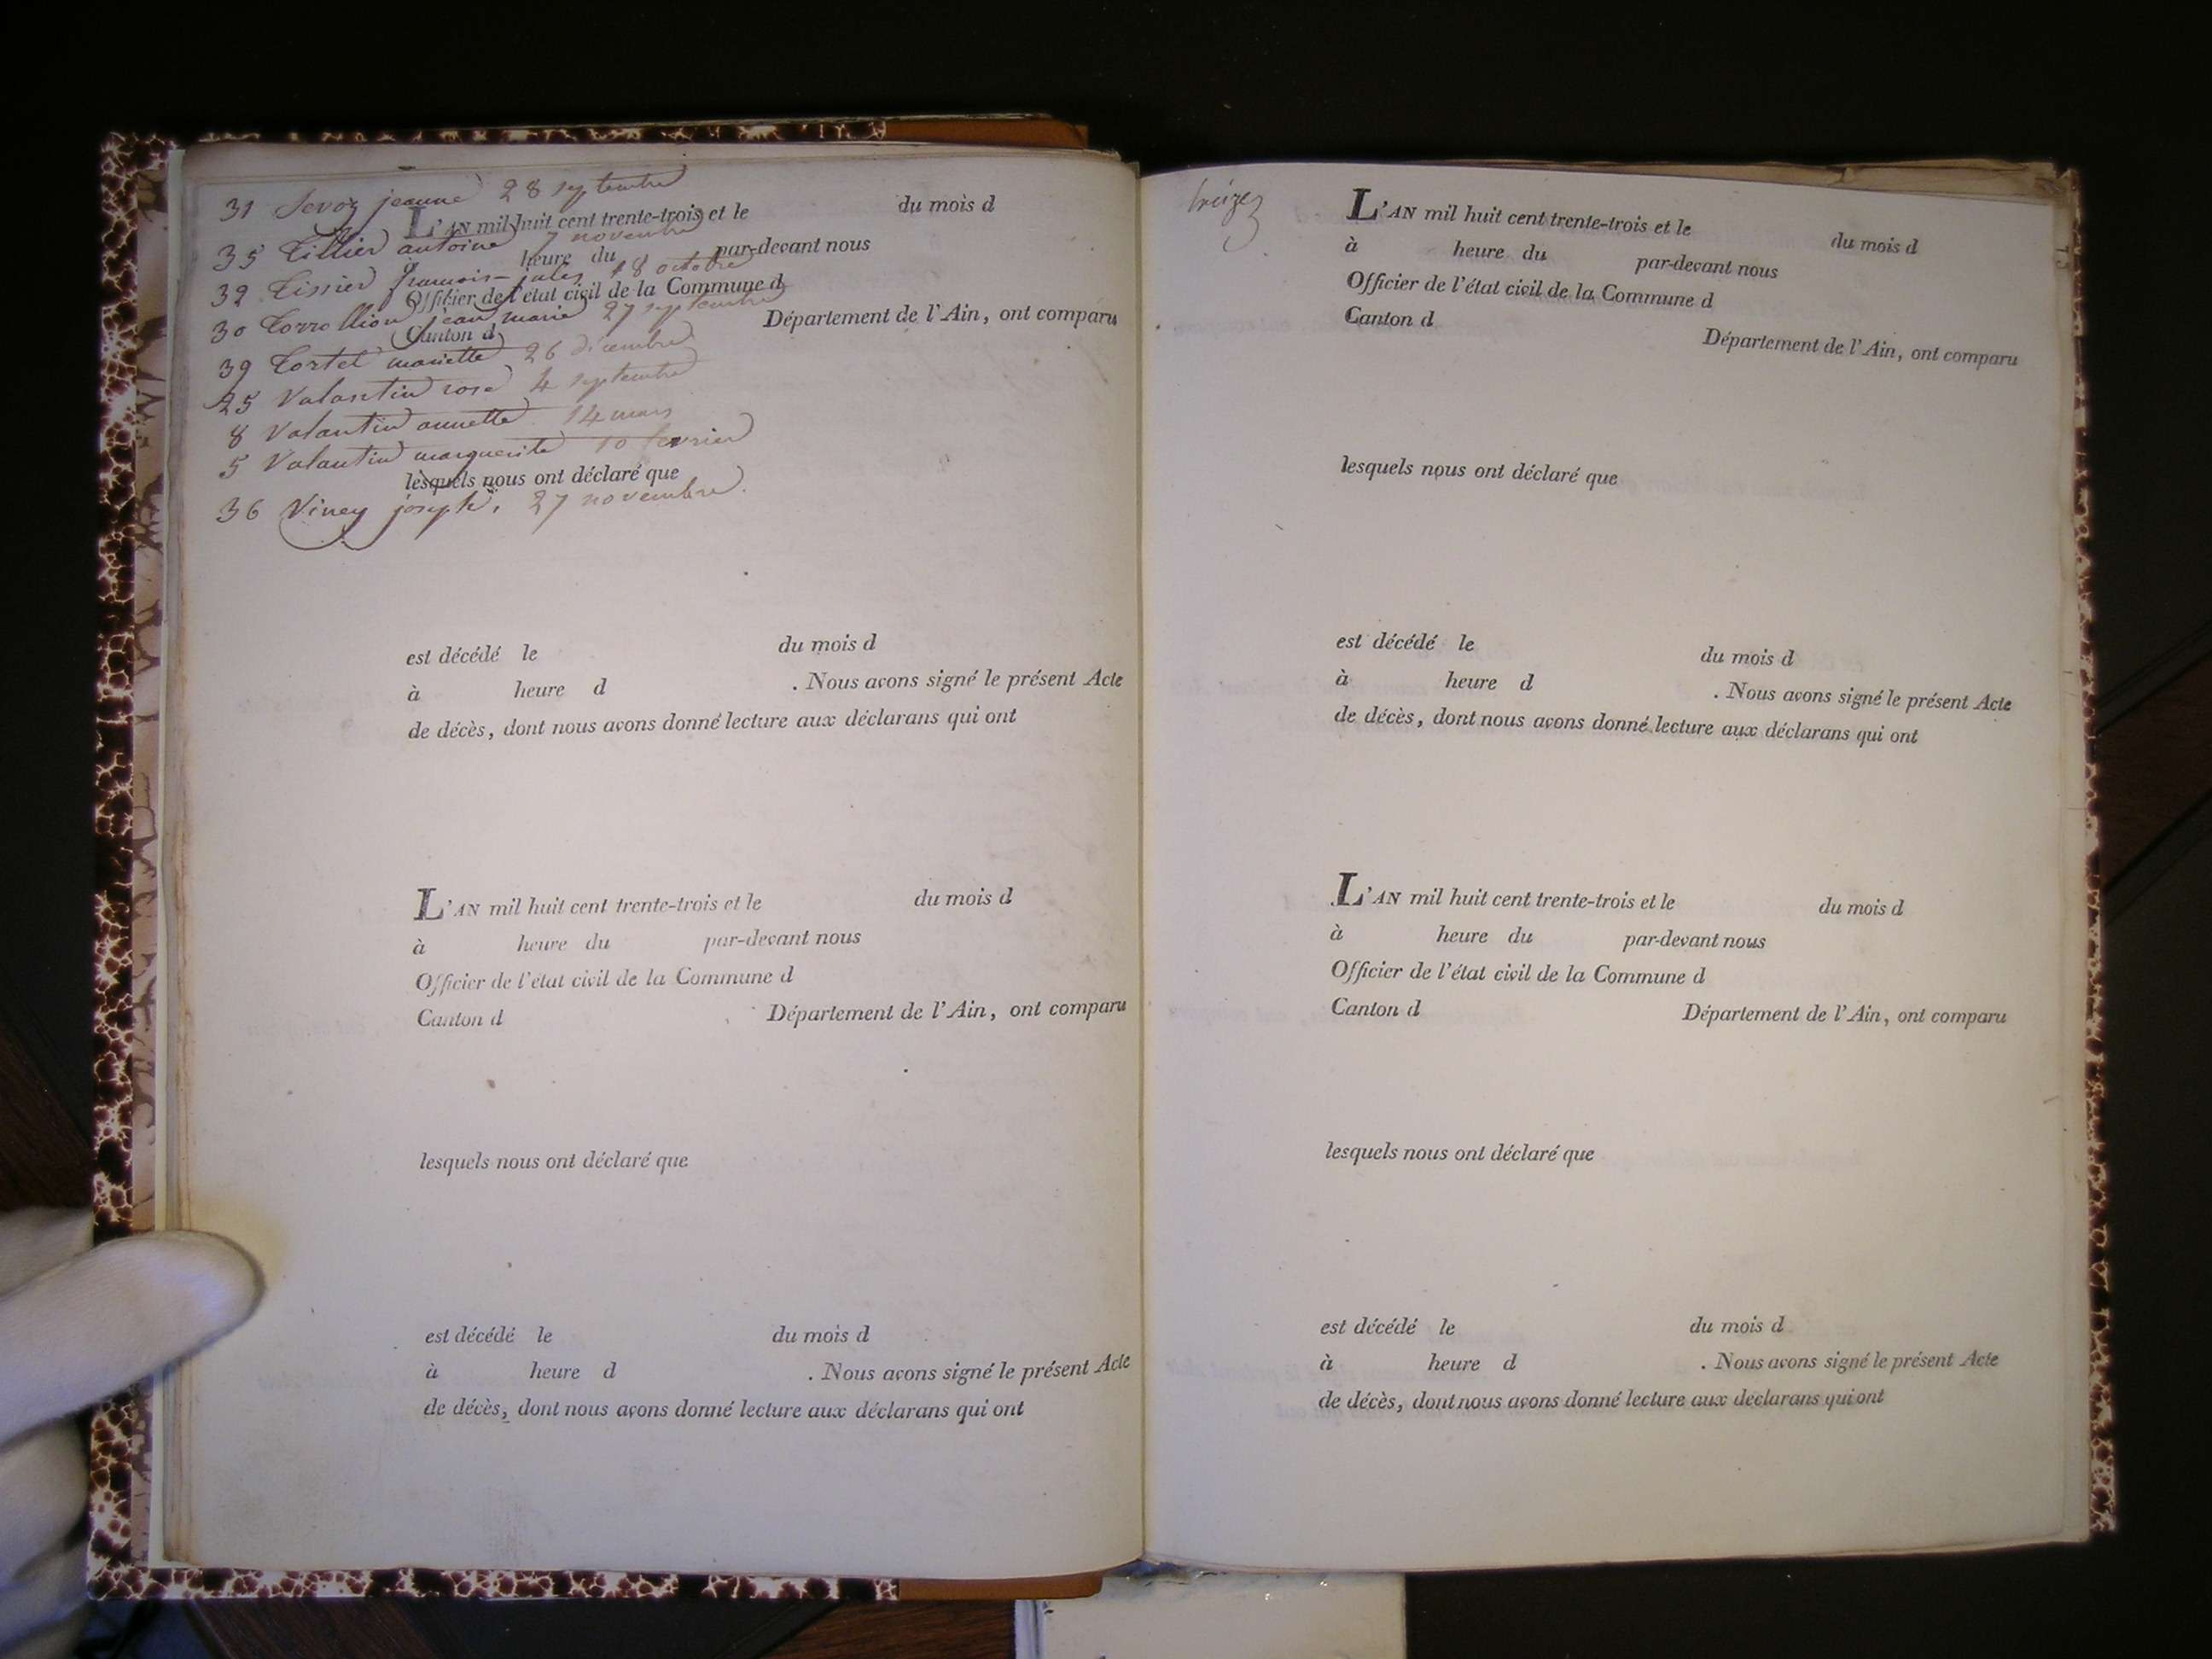 31 Sevoz jeanne 28 septembre
L'AN mil huit cent trente-trois et le du mois d
35 Tillier antoine 7 novembre
heure du par-devant nous
32 Tissier francois-jules 18 octobre
Officier de l'état civil de la Commune d
30 Torrollion jean marie 27 septembre
Canton d Département de l'Ain, ont comparu
39 Tortel mariette 26 décembre
25 Valantin rose 4 septembre
8 Valantin annette 14 mars
5 Valantin marguerite 10 fevrier
lesquels nous ont déclaré que
36 Viney joseph, 27 novembre.
est décédé le du mois d
à heure d . Nous avons signé le présent Acte
de décès, dont nous avons donné lecture aux déclarans qui ont
L'AN mil huit cent trente-trois et le du mois d
à heure du par-devant nous
Officier de l'état civil de la Commune d
Canton d Département de l'Ain, ont comparu
lesquels nous ont déclaré que
est décédé le du mois d
à heure d . Nous avons signé le présent Acte
de décès, dont nous avons donné lecture aux déclarans qui ont
treize
L'AN mil huit cent trente-trois et le du mois d
à heure du par-devant nous
Officier de l'état civil de la Commune d
Canton d Département de l'Ain, ont comparu
lesquels nous ont déclaré que
est décédé le du mois d
à heure d . Nous avons signé le présent Acte
de décès, dont nous avons donné lecture aux déclarans qui ont
L'AN mil huit cent trente-trois et le du mois d
à heure du par-devant nous
Officier de l'état civil de la Commune d
Canton d Département de l'Ain, ont comparu
lesquels nous ont déclaré que
est décédé le du mois d
à heure d . Nous avons signé le présent Acte
de décès, dont nous avons donné lecture aux déclarans qui ont